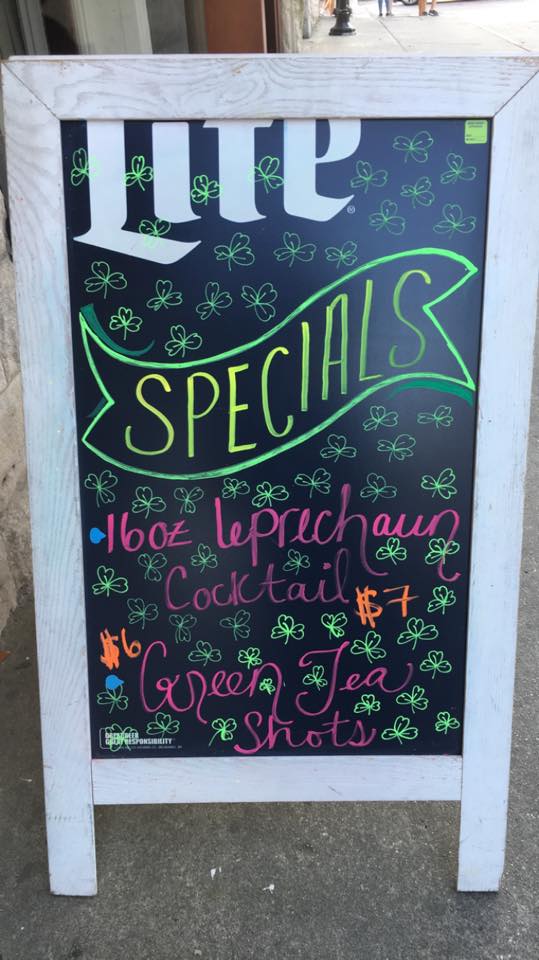 Lite®
SPECIALS
16oz leprechaun
Cocktail $7
$6 Green Tea
Shots
GREAT BEER
GREAT RESPONSIBILITY